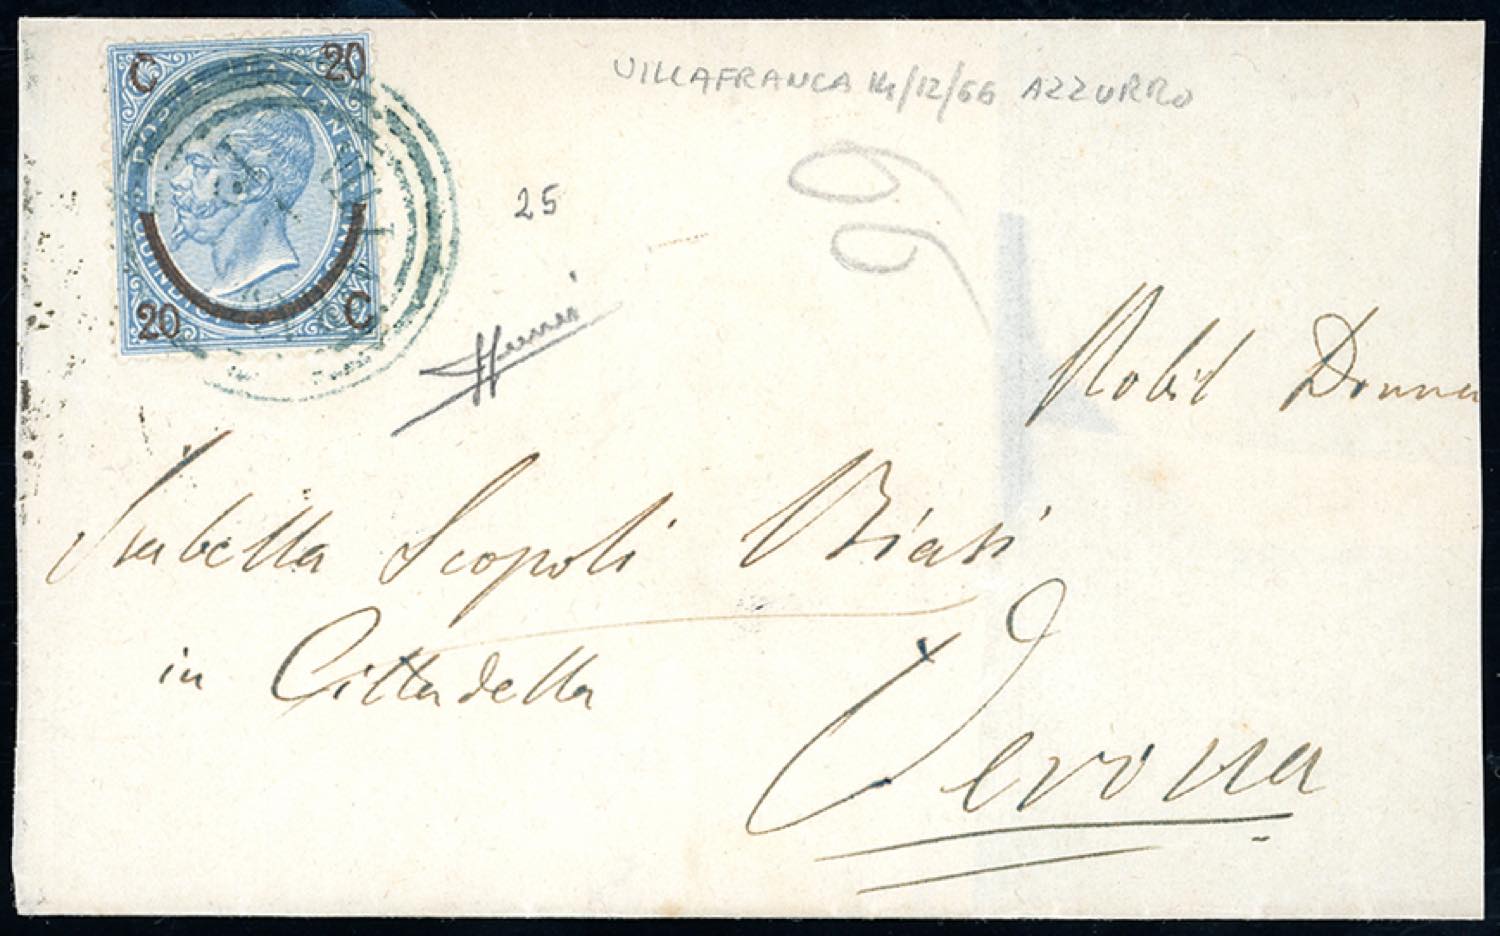 C 20
POSTE ITALIANE
20 C
VILLAFRANCA 14/12/66 AZZURRO
25
Nobil Donna
Isabella Scopoli Biasi
in Cittadella
Verona